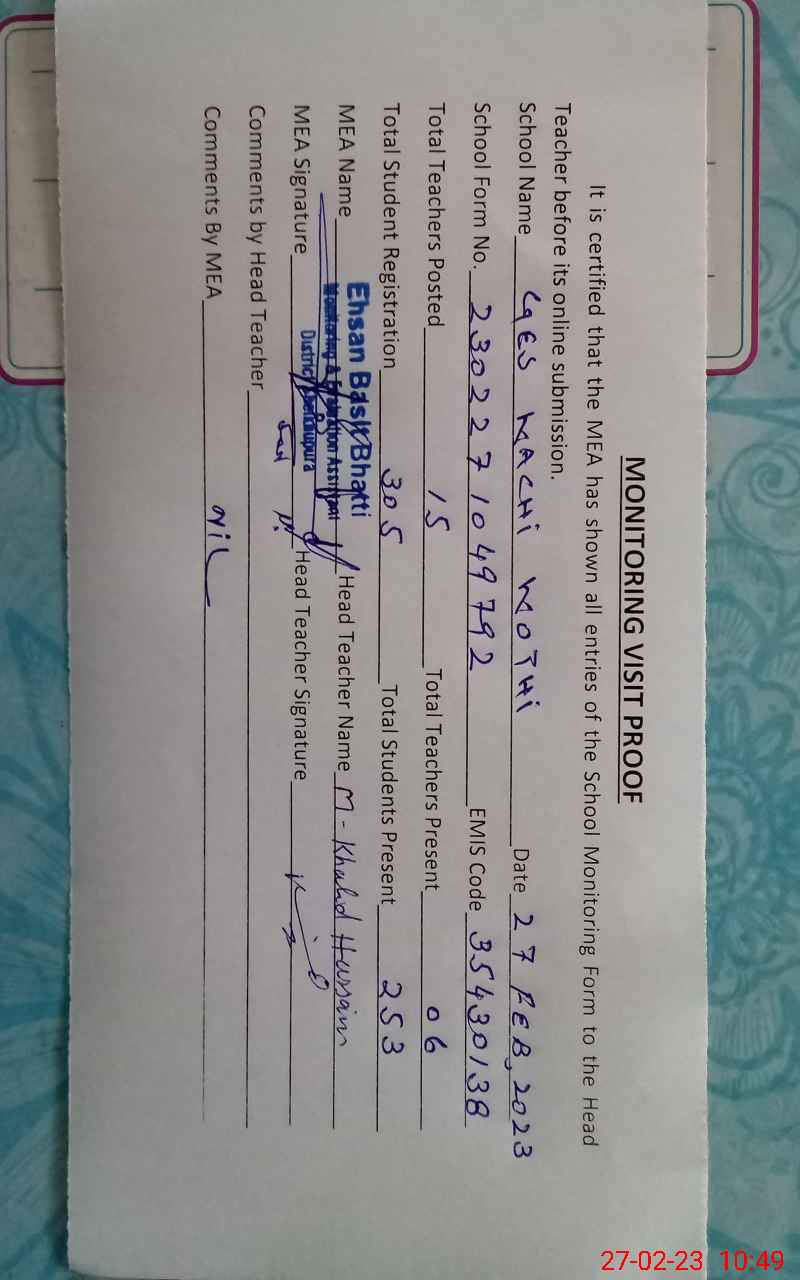 MONITORING VISIT PROOF
It is certified that the MEA has shown all entries of the School Monitoring Form to the Head
Teacher before its online submission.
School Name GES MACHi MOTHi Date 27 FEB, 2023
School Form No. 2302271049792 EMIS Code 35430138
Total Teachers Posted 15 Total Teachers Present 06
Total Student Registration 305 Total Students Present 253
MEA Name Ehsan Basit Bhatti Head Teacher Name M - Khalid Hussain
Monitoring & Evaluation Assistant
District Sheikhupura
MEA Signature Head Teacher Signature
Comments by Head Teacher
Comments By MEA Nil
27-02-23 10:49